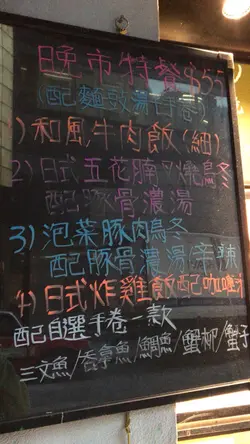 晚市特餐$55
(配麵豉湯
1)和風牛肉飯(細)
2)日式五花腩叉燒烏冬
配豚骨濃湯
3)泡菜豚肉烏冬
配豚骨濃湯/辛辣
4)日式炸雞飯配咖喱汁
配自選手卷一款
三文魚/吞拿魚/鯛魚/蟹柳/蟹子